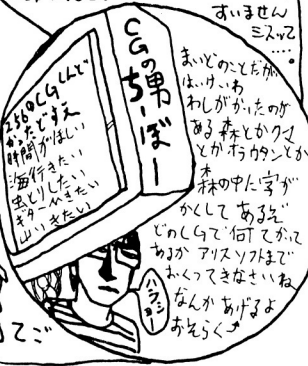 すいません
ミスッて
....
CGの男
ちーぼー
256色CGしんど
かったどすえ
時間がほしい
海行きたい
虫とりしたい
ギターひきたい
山いきたい
まいどのことだが
はいけいわ
わしがかいたのが
ある 森とかクマ
とかボラウタンとか
森の中に字が
かくしてあるぞ
どのCGで何てかいて
あるか アリスソフトまで
おくってきなさいね
なんか あげるよ
おそらく
ハラショー
てご